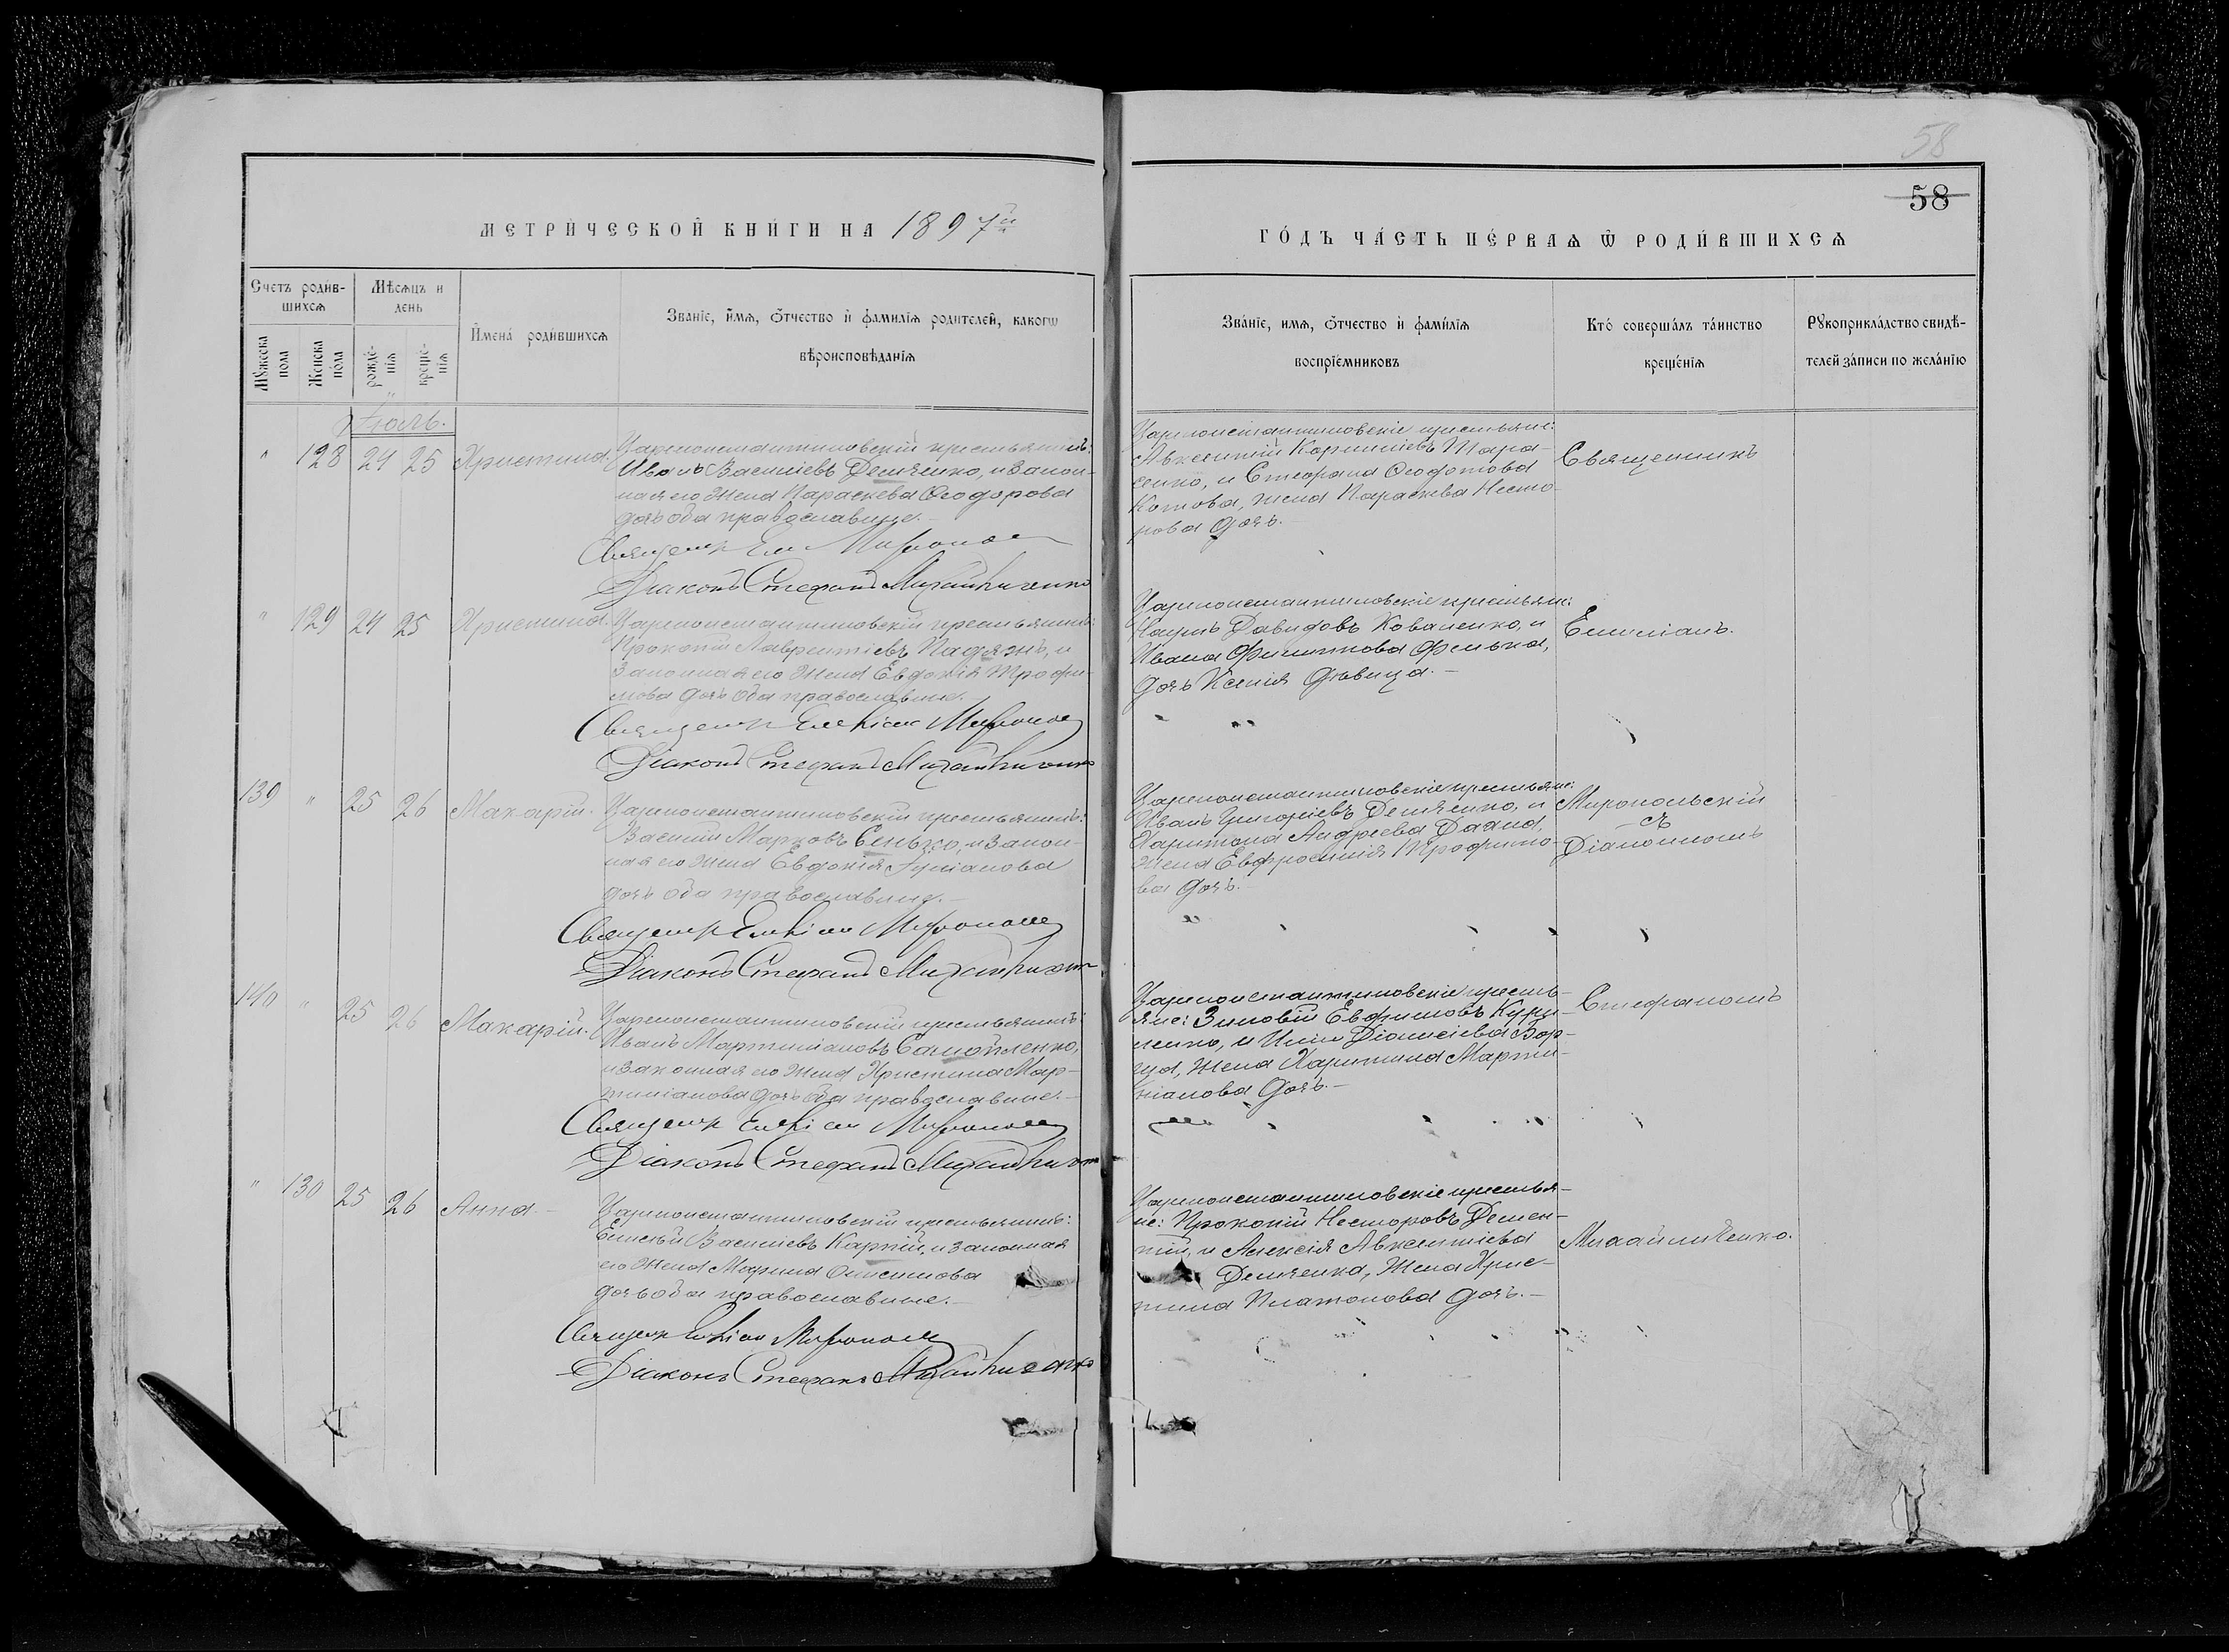 58
58
МЕТРИ́ЧЕСКОЙ КНИ́ГИ НА 1897й
ГО́ДЪ ЧА́СТЬ ПЕ́РВАѦ Ѿ РОДИ́ВШИХСѦ
Счетъ роди́в-
шихсѧ
Мѣсѧцъ и
день
Мꙋжеска
пола
Женска
по́ла
рожде́-
нїѧ
креще-
нїѧ
И҆мена́ роди́вшихсѧ
Званїе, и҆́мѧ, ѻ҆́тчество и҆ фамилїѧ родителей, какогѡ
вѣроисповѣданїѧ
Зва́нїе, имѧ, ѻ҆́тчество и҆ фами́лїѧ
воспрїе́мниковъ
Кто́ соверша́лъ та́инство
креще́нїѧ
Рꙋкоприкла́дство свидѣ́-
телей за́писи по жела́нїю
Іюль.
" 128 24 25 Христина.
Цареконстантиновскій крестьянинъ:
Иванъ Василіевъ Демченко, и закон-
ная его жена Параскева Ѳеодорова
дочь оба православные.-
Священ
Діаконъ Стефанъ Михайличенко
Цареконстантиновскіе крестьяне:
Авксентій Корниліевъ Тара-
сенко, и Стефана Ѳеодотова
Котова, жена Параскева Несто-
рова дочь.-
Священникъ
" 129 24 25 Христина.
Цареконстантиновскій крестьянинъ:
Прокопій Лаврентіевъ Падяжъ, и
законная его жена Евдокія Трофи-
мова дочь оба православные.-
Священ Емеліан Мирополь
Діаконъ Стефанъ Михайличенко
Цареконстантиновскіе крестьяне:
Наумъ Давидовъ Коваленко, и
Ивана Филиппова Фенька,
дочь Ксенія девица.-
Емиліанъ.
139 " 25 26 Макарій.
Цареконстантиновскій крестьянинъ:
Василій Марковъ Сенько, и закон-
ная его жена Евдокія Іуліанова
дочь оба православные.-
Священ Емеліан Мирополь
Діаконъ Стефанъ Михайличен
Цареконстантиновскіе крестьяне:
Иванъ Григоріевъ Демченко, и
Харитона Андреева
жена Евфросинія Трофимо-
ва дочь.-
Миропольскій
съ
Діакономъ
140 " 25 26 Макарій.
Цареконстантиновскій крестьянинъ:
Иванъ Мартиніановъ Самойленко,
и законная его жена Христина Мар-
тиніанова дочь оба православные.-
Священ Емеліан Мирополь
Діаконъ Стефанъ Михайличен
Цареконстантиновскіе кресть-
яне: Зиновій Евфимовъ Кури-
ленко, и Діонисіева Бор-
жена Харитина Марти-
ніанова дочь.-
Стефаномъ
" 130 25 26 Анна.-
Цареконстантиновскій крестьянинъ:
Елисей Василіевъ Карпій, и законная
его жена Марина Онисимова
дочь оба православные.-
Священ Емеліан Мирополь
Діаконъ Стефанъ Михайличенко
Цареконстантиновскіе крестья-
не: Прокопій Несторовъ Демен-
тій, и Алексія Авксентіева
Демченка, жена Хрис-
тина Платонова дочь.-
Михайличенко.